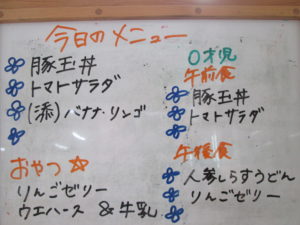 今日のメニュー
豚玉丼
トマトサラダ
(添)バナナ・リンゴ
おやつ☆
りんごゼリー
ウエハース & 牛乳
0才児
午前食
豚玉丼
トマトサラダ
午後食
人参しらすうどん
りんごゼリー